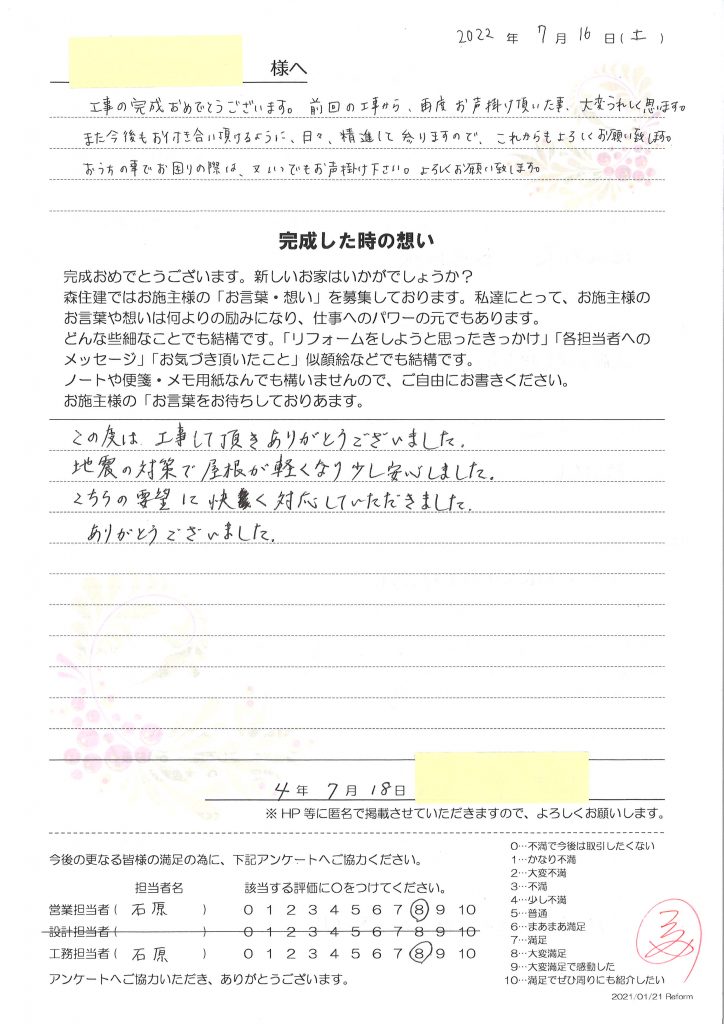 2022 年 7 月 16 日(土)
様へ
工事の完成おめでとうございます。前回の工事から、再度お声掛け頂いた事、大変うれしく思います。
また今後もお付き合い頂けるように、日々、精進して参りますので、これからもよろしくお願い致します。
おうちの事でお困りの際は、又いつでもお声掛け下さい。よろしくお願い致します。
完成した時の想い
完成おめでとうございます。新しいお家はいかがでしょうか？
森住建ではお施主様の「お言葉・想い」を募集しております。私達にとって、お施主様の
お言葉や想いは何よりの励みになり、仕事へのパワーの元でもあります。
どんな些細なことでも結構です。「リフォームをしようと思ったきっかけ」「各担当者への
メッセージ」「お気づき頂いたこと」似顔絵などでも結構です。
ノートや便箋・メモ用紙なんでも構いませんので、ご自由にお書きください。
お施主様の「お言葉をお待ちしておりあます。
この度は 工事して頂きありがとうございました.
地震の対策で屋根が軽くなり少し安心しました.
こちらの要望に快く対応していただきました.
ありがとうございました.
4 年 7 月 18 日
※HP 等に匿名で掲載させていただきますので、よろしくお願いします。
今後の更なる皆様の満足の為に、下記アンケートへご協力ください。
担当者名 該当する評価に〇をつけてください。
営業担当者( 石原 ) 0 1 2 3 4 5 6 7 8 9 10
設計担当者( ) 0 1 2 3 4 5 6 7 8 9 10
工務担当者( 石原 ) 0 1 2 3 4 5 6 7 8 9 10
アンケートへご協力いただき、ありがとうございます。
0…不満で今後は取引したくない
1…かなり不満
2…大変不満
3…不満
4…少し不満
5…普通
6…まあまあ満足
7…満足
8…大変満足
9…大変満足で感動した
10…満足でぜひ周りにも紹介したい
2021/01/21 Reform